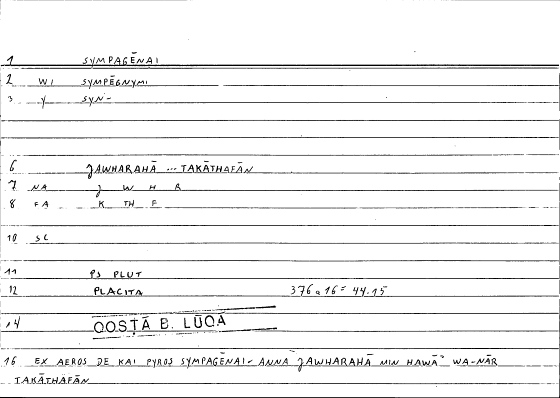 1 SYMPAGĒNAI
2 WI SYMPĒGNYMI
3 Y SYN-
6 ǦAWHARAHĀ ... TAKĀTHAFĀN
7 NA J W H R
8 FA K TH F
10 SC
11 PS PLUT
12 PLACITA 376 a 16 = 44.15
14 QOSṬĀ B. LŪQĀ
16 EX AEROS DE KAI PYROS SYMPAGĒNAI - ANNA ǦAWHARAHĀ MIN HAWĀ' WA-NĀR
TAKĀTHAFĀN